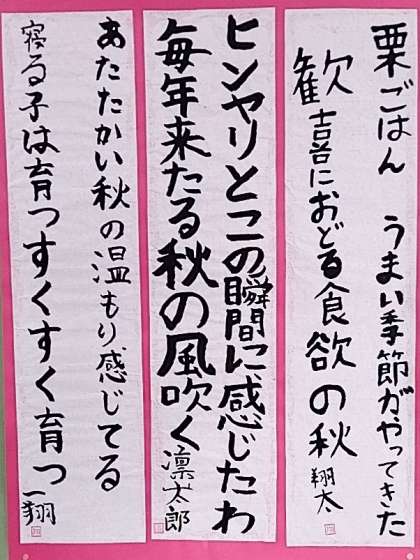 栗ごはん　うまい季節がやってきた
歓喜におどる食欲の秋　翔太
ヒンヤリとこの瞬間に感じたわ
毎年来たる秋の風吹く　凛太郎
あたたかい秋の温もり感じてる
寝る子は育つすくすく育つ　一翔